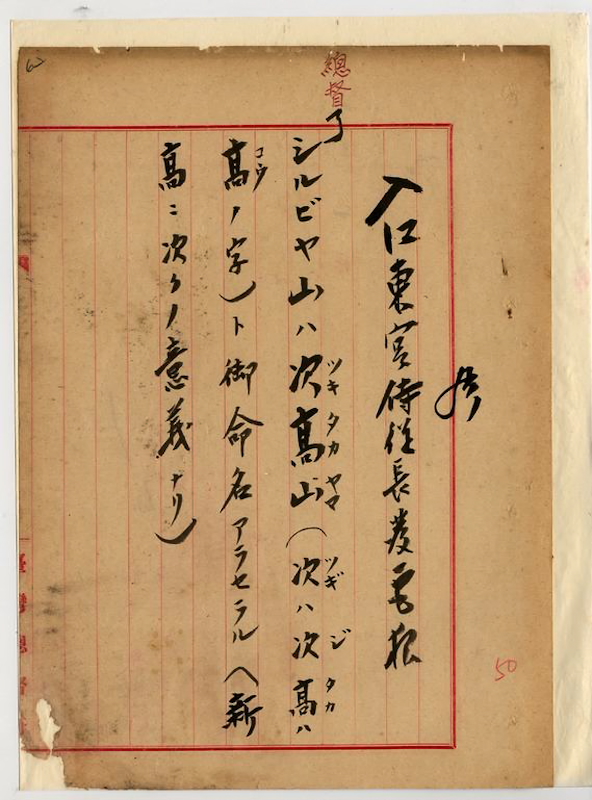 總督
入江東宮侍從長發電報
シルビヤ山ハ次高山(次ハ次高ハ
ツギタカヤマ ツギ ジ タカ
高ノ字)ト御命名アラセラル(新
コウ
高ニ次クノ意義ナリ)
50